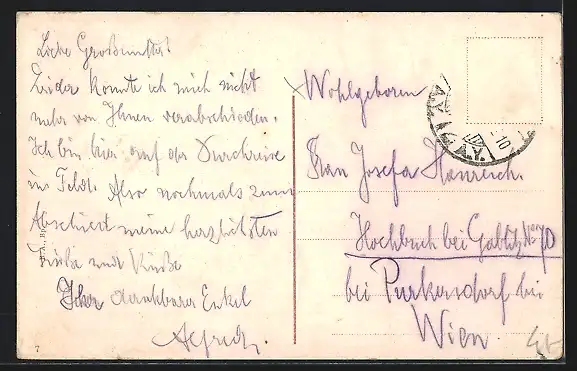 Liebe Großmutter!
Leider konnte ich mich nicht
mehr von Ihnen verabschieden.
Ich bin hier auf der Durchreise
ins Feld. Also nochmals zum
Abschied meine herzlichsten
Grüße und Küße
Ihr dankbarer Enkel
Alfred.
7
Wohlgeboren
Frau Josefa Heinreich.
Hochbuch bei Gablitz No 70
bei Purkersdorf bei
Wien
10